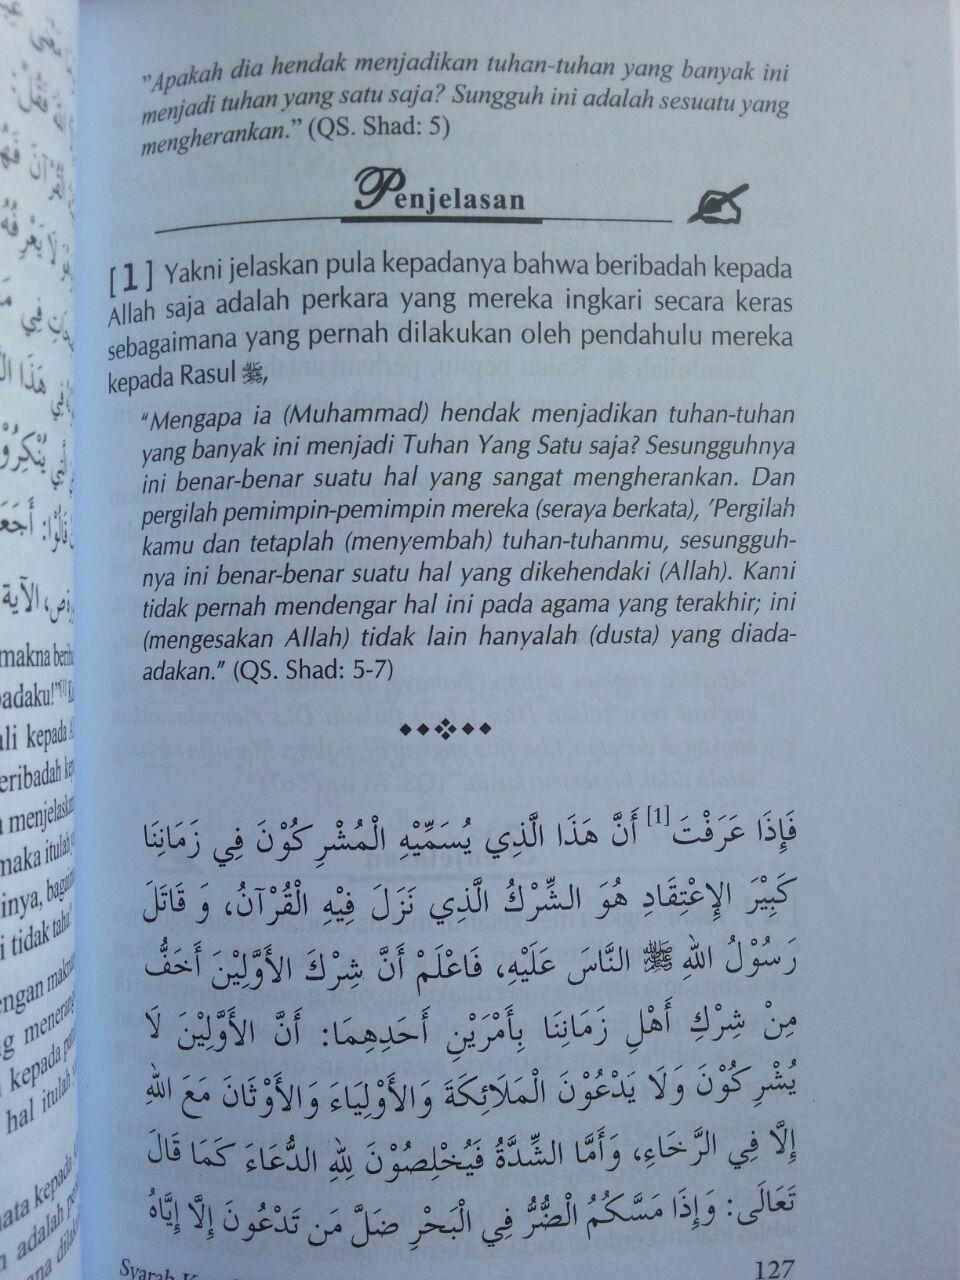 "Apakah dia hendak menjadikan tuhan-tuhan yang banyak ini
menjadi tuhan yang satu saja? Sungguh ini adalah sesuatu yang
mengherankan." (QS. Shad: 5)
Penjelasan
[1] Yakni jelaskan pula kepadanya bahwa beribadah kepada
Allah saja adalah perkara yang mereka ingkari secara keras
sebagaimana yang pernah dilakukan oleh pendahulu mereka
kepada Rasul ﷺ,
"Mengapa ia (Muhammad) hendak menjadikan tuhan-tuhan
yang banyak ini menjadi Tuhan Yang Satu saja? Sesungguhnya
ini benar-benar suatu hal yang sangat mengherankan. Dan
pergilah pemimpin-pemimpin mereka (seraya berkata), 'Pergilah
kamu dan tetaplah (menyembah) tuhan-tuhanmu, sesungguh-
nya ini benar-benar suatu hal yang dikehendaki (Allah). Kami
tidak pernah mendengar hal ini pada agama yang terakhir; ini
(mengesakan Allah) tidak lain hanyalah (dusta) yang diada-
adakan." (QS. Shad: 5-7)
فَإِذَا عَرَفْتَ [1] أَنَّ هَذَا الَّذِي يُسَمِّيْهِ الْمُشْرِكُوْنَ فِي زَمَانِنَا
كَبِيْرَ الإِعْتِقَادِ هُوَ الشِّرْكُ الَّذِي نَزَلَ فِيْهِ الْقُرْآنُ، وَ قَاتَلَ
رَسُوْلُ اللهِ ﷺ النَّاسَ عَلَيْهِ، فَاعْلَمْ أَنَّ شِرْكَ الأَوَّلِيْنَ أَخَفُّ
مِنْ شِرْكِ أَهْلِ زَمَانِنَا بِأَمْرَيْنِ أَحَدِهِمَا: أَنَّ الأَوَّلِيْنَ لَا
يُشْرِكُوْنَ وَلَا يَدْعُوْنَ الْمَلَائِكَةَ وَالأَوْلِيَاءَ وَالأَوْثَانَ مَعَ اللهِ
إِلَّا فِي الرَّخَاءِ، وَأَمَّا الشِّدَّةُ فَيُخْلِصُوْنَ لِلهِ الدُّعَاءَ كَمَا قَالَ
تَعَالَى: وَإِذَا مَسَّكُمُ الْضُّرُّ فِي الْبَحْرِ ضَلَّ مَن تَدْعُونَ إِلَّا إِيَّاهُ
Syarah
127